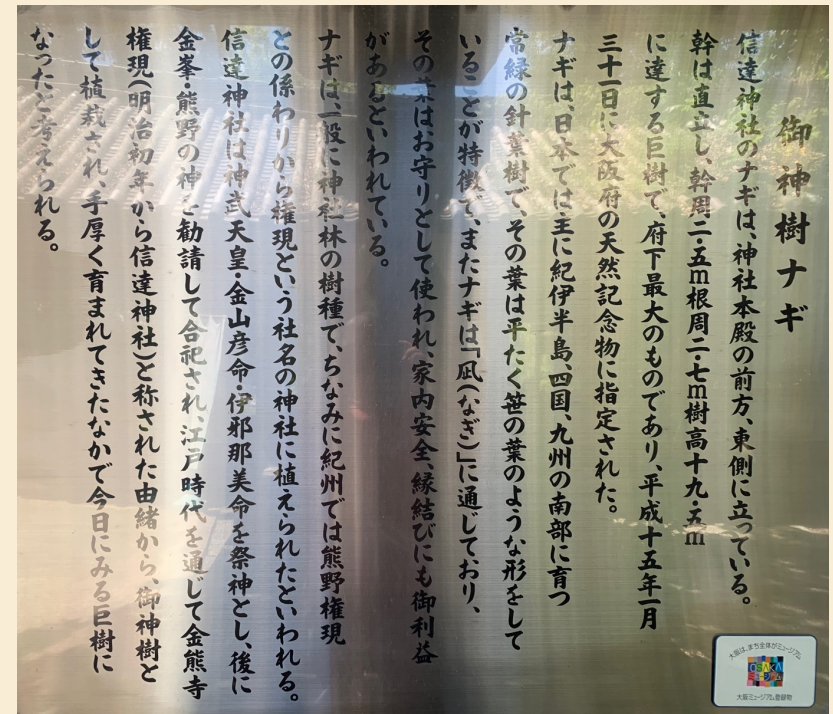 御神樹ナギ
信達神社のナギは、神社本殿の前方、東側に立っている。
幹は直立し、幹周二・五m根周二・七m樹高十九・五m
に達する巨樹で、府下最大のものであり、平成十五年一月
三十一日に大阪府の天然記念物に指定された。
ナギは、日本では主に紀伊半島、四国、九州の南部に育つ
常緑の針葉樹で、その葉は平たく笹の葉のような形をして
いることが特徴で、またナギは「凪(なぎ)」に通じており、
その葉はお守りとして使われ、家内安全、縁結びにも御利益
があるといわれている。
ナギは、一般に神社林の樹種で、ちなみに紀州では熊野権現
との係わりから権現という社名の神社に植えられたといわれる。
信達神社は神武天皇・金山彦命・伊邪那美命を祭神とし、後に
金峯・熊野の神を勧請して合祀され、江戸時代を通じて金熊寺
権現(明治初年から信達神社)と称された由緒から、御神樹と
して植栽され、手厚く育まれてきたなかで今日にみる巨樹に
なったと考えられる。
大阪は、まち全体がミュージアム
OSAKA
ミュージアム
大阪ミュージアム登録物